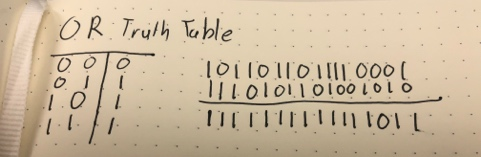 OR Truth Table
0 0 0
0 1 1
1 0 1
1 1 1
1011011011110001
1110101101001010
1111111111111011